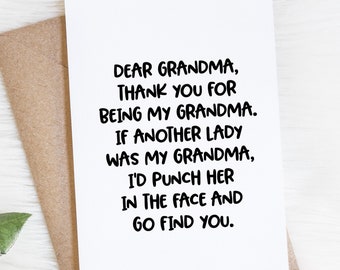 DEAR GRANDMA,
THANK YOU FOR
BEING MY GRANDMA.
IF ANOTHER LADY
WAS MY GRANDMA,
I'D PUNCH HER
IN THE FACE AND
GO FIND YOU.